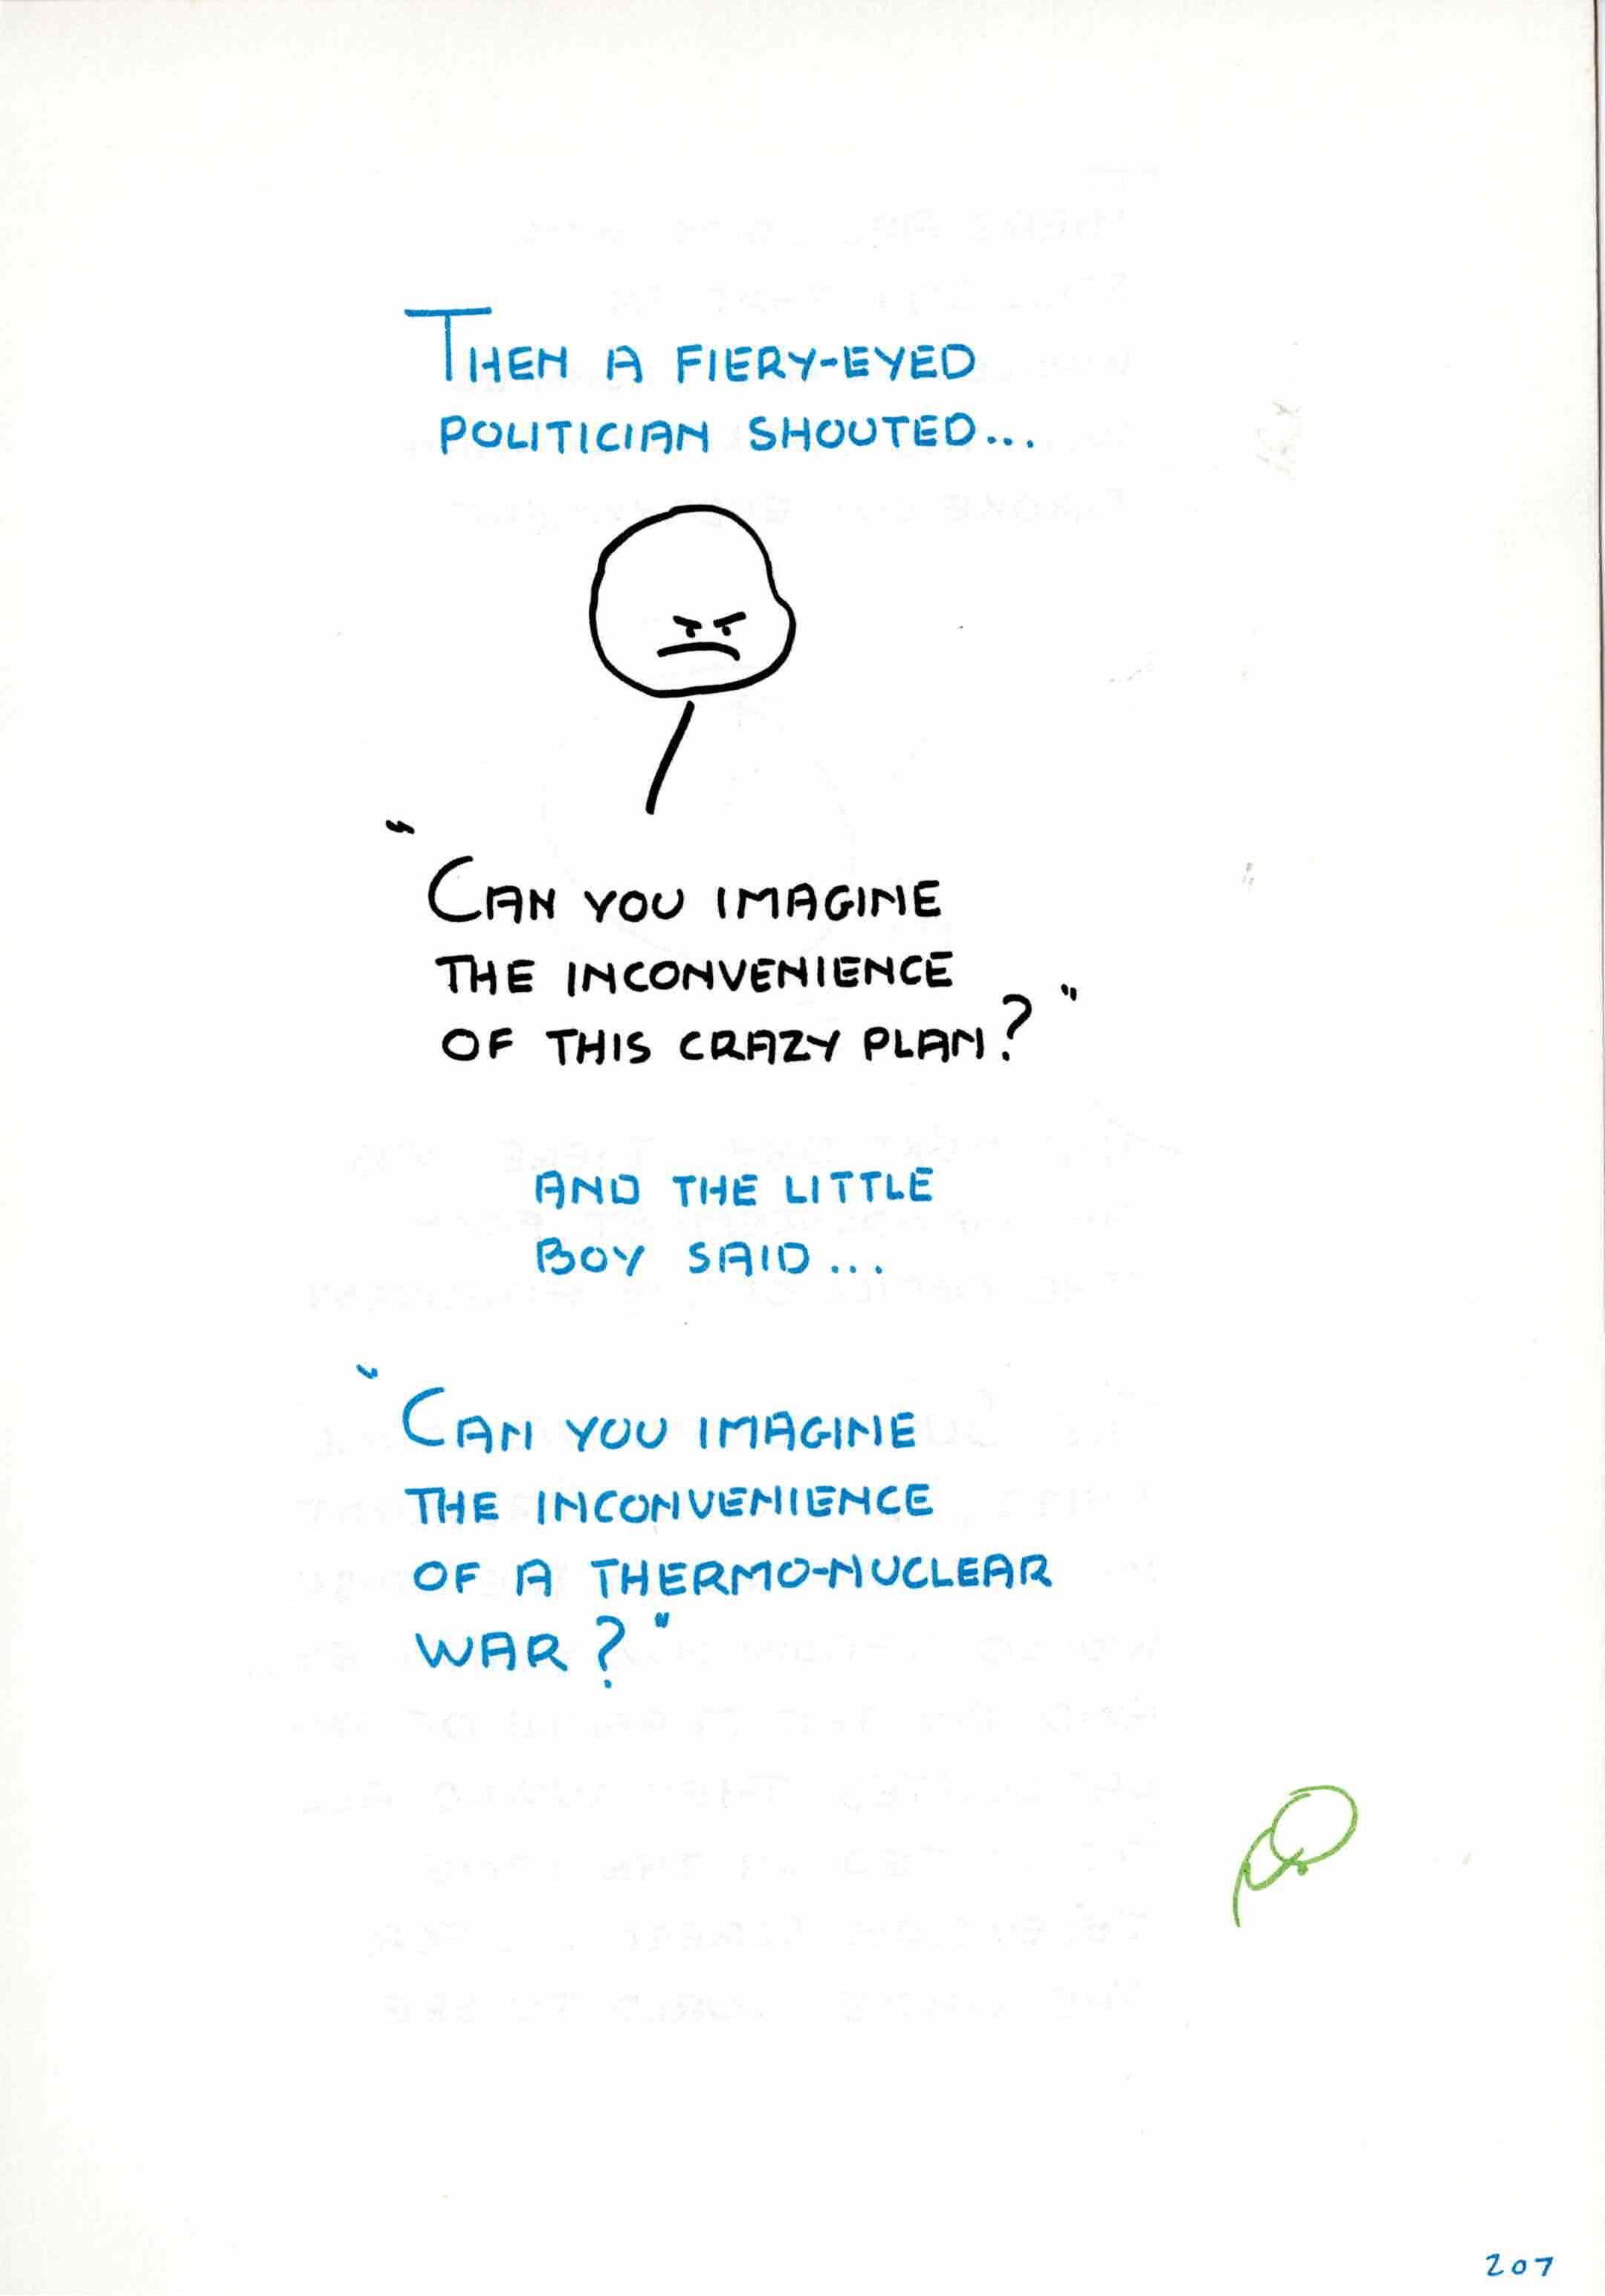 THEN A FIERY-EYED
POLITICIAN SHOUTED...
"CAN YOU IMAGINE
THE INCONVENIENCE
OF THIS CRAZY PLAN?"
AND THE LITTLE
BOY SAID...
"CAN YOU IMAGINE
THE INCONVENIENCE
OF A THERMO-NUCLEAR
WAR?"
207